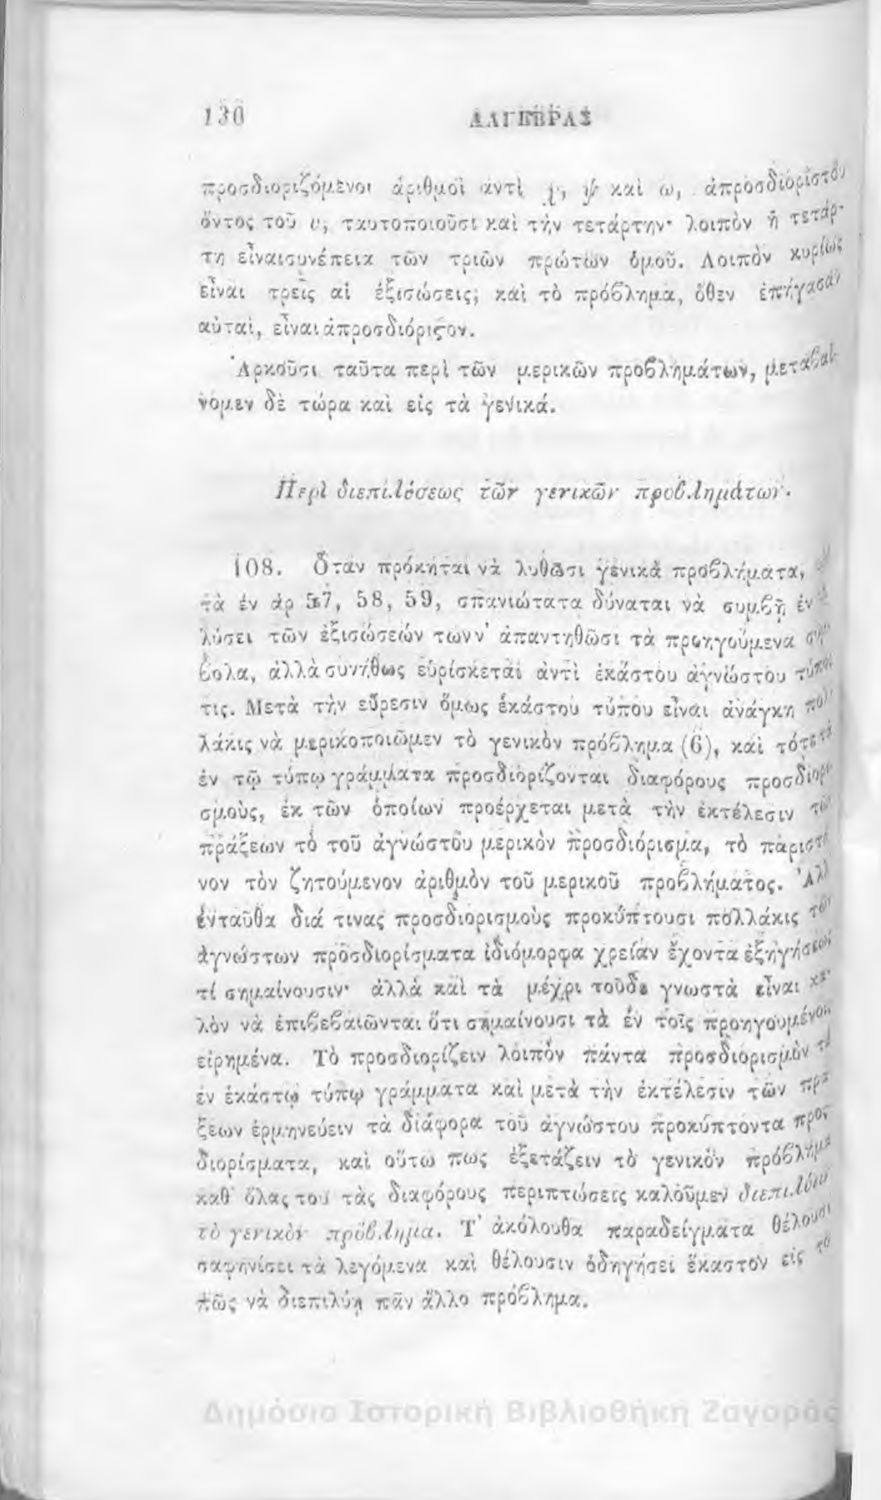 130 ΑΛΓΕΒΡΑΣ
προσδιοριζόμενοι ἀριθμοὶ ἀντὶ χ, ψ καὶ ω, ἀπροσδιορίστου
ὄντος τοῦ υ, ταυτοποιοῦσι καὶ τὴν τετάρτην· λοιπὸν ἡ τετάρ-
τη εἶναισυνέπεια τῶν τριῶν πρώτων ὁμοῦ. Λοιπὸν κυρίως
εἶναι τρεῖς αἱ ἐξισώσεις, καὶ τὸ πρόβλημα, ὅθεν ἐπήγασαν
αὐταὶ, εἶναι ἀπροσδιόριςον.
Ἀρκοῦσι ταῦτα περὶ τῶν μερικῶν προβλημάτων, μεταβαί-
νομεν δὲ τώρα καὶ εἰς τὰ γενικά.
Περὶ διεπιλύσεως τῶν γενικῶν προβλημάτων.
108. Ὅταν πρόκηται νὰ λυθῶσι γενικὰ προβλήματα,
τὰ ἐν ἀρ 57, 58, 59, σπανιώτατα δύναται νὰ συμβῇ ἐν
λύσει τῶν ἐξισώσεών των ν' ἀπαντηθῶσι τὰ προηγούμενα σύμ-
βολα, ἀλλὰ συνήθως εὑρίσκεται ἀντὶ ἑκάστου ἀγνώστου τύπος
τις. Μετὰ τὴν εὕρεσιν ὅμως ἑκάστου τύπου εἶναι ἀνάγκη πολ-
λάκις νὰ μερικοποιῶμεν τὸ γενικὸν πρόβλημα (6), καὶ τότε τὰ
ἐν τῷ τύπῳ γράμματα προσδιορίζονται διαφόρους προσδιορι-
σμοὺς, ἐκ τῶν ὁποίων προέρχεται μετὰ τὴν ἐκτέλεσιν τῶν
πράξεων τὸ τοῦ ἀγνώστου μερικὸν προσδιόρισμα, τὸ παριστά-
νον τὸν ζητούμενον ἀριθμὸν τοῦ μερικοῦ προβλήματος. Ἀλλ'
ἐνταῦθα διά τινας προσδιορισμοὺς προκύπτουσι πολλάκις τῶν
ἀγνώστων προσδιορίσματα ἰδιόμορφα χρείαν ἔχοντα ἐξηγήσεως
τί σημαίνουσιν· ἀλλὰ καὶ τὰ μέχρι τοῦδε γνωστὰ εἶναι κα-
λὸν νὰ ἐπιβεβαιῶνται ὅτι σημαίνουσι τὰ ἐν τοῖς προηγουμένοις
εἰρημένα. Τὸ προσδιορίζειν λοιπὸν πάντα προσδιορισμὸν τὰ
ἐν ἑκάστῳ τύπῳ γράμματα καὶ μετὰ τὴν ἐκτέλεσιν τῶν πρά-
ξεων ἑρμηνεύειν τὰ διάφορα τοῦ ἀγνώστου προκύπτοντα προς-
διορίσματα, καὶ οὕτω πως ἐξετάζειν τὸ γενικὸν πρόβλημα
καθ' ὅλας του τὰς διαφόρους περιπτώσεις καλοῦμεν διεπιλύειν
τὸ γενικὸν πρόβλημα. Τ' ἀκόλουθα παραδείγματα θέλουσι
σαφηνίσει τὰ λεγόμενα καὶ θέλουσιν ὁδηγήσει ἕκαστον εἰς τὸ
πῶς νὰ διεπιλύῃ πᾶν ἄλλο πρόβλημα.
Δημόσια Ιστορική Βιβλιοθήκη Ζαγοράς